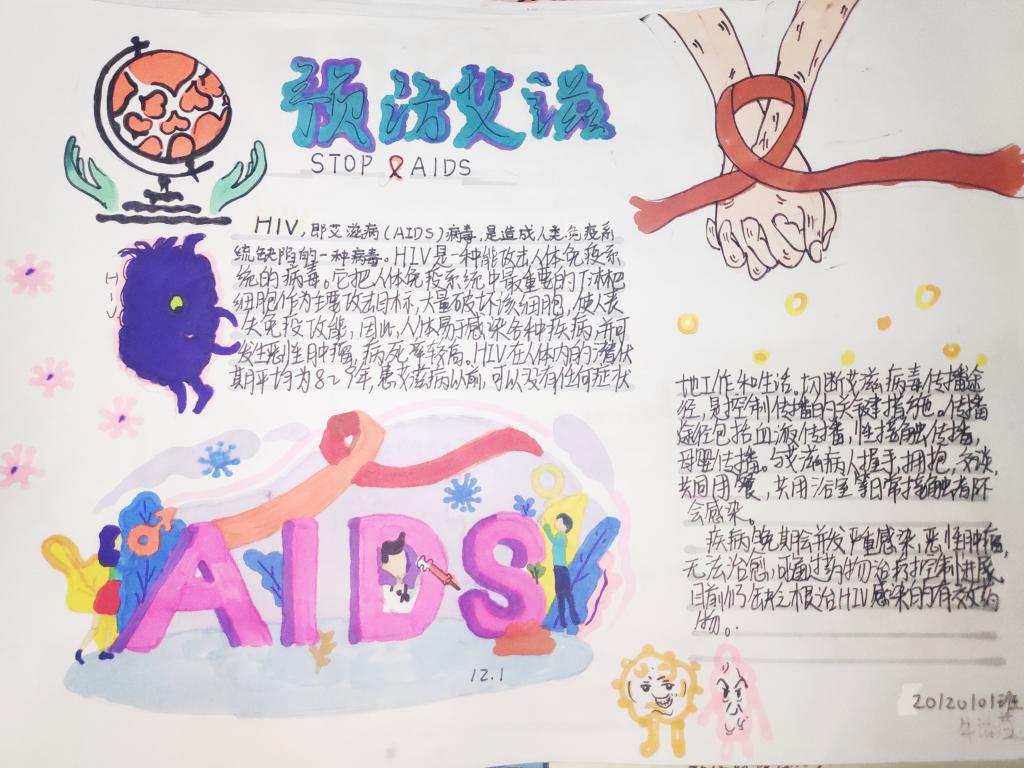 预防艾滋
STOP AIDS
HIV，即艾滋病（AIDS）病毒，是造成人类免疫系
统缺陷的一种病毒。HIV是一种能攻击人体免疫系
统的病毒。它把人体免疫系统中最重要的T淋巴
细胞作为主要攻击目标，大量破坏该细胞，使人类
失免疫功能，因此，人体易于感染各种疾病，并可
发生恶性肿瘤，病死率较高。HIV在人体内的潜伏
期平均为8~9年，患艾滋病以前，可以没有任何症状
HIV
地工作和生活。切断艾滋病毒传播途
径，是控制传播的关键措施。传播
途径包括血液传播，性接触传播，
母婴传播。与艾滋病人握手，拥抱，交谈，
共同用餐，共用浴室等日常接触者不
会感染。
疾病晚期会并发严重感染，恶性肿瘤，
无法治愈，可通过药物治疗控制进展
目前仍缺乏根治HIV感染的有效药
物。
AIDS
12.1
20120101班